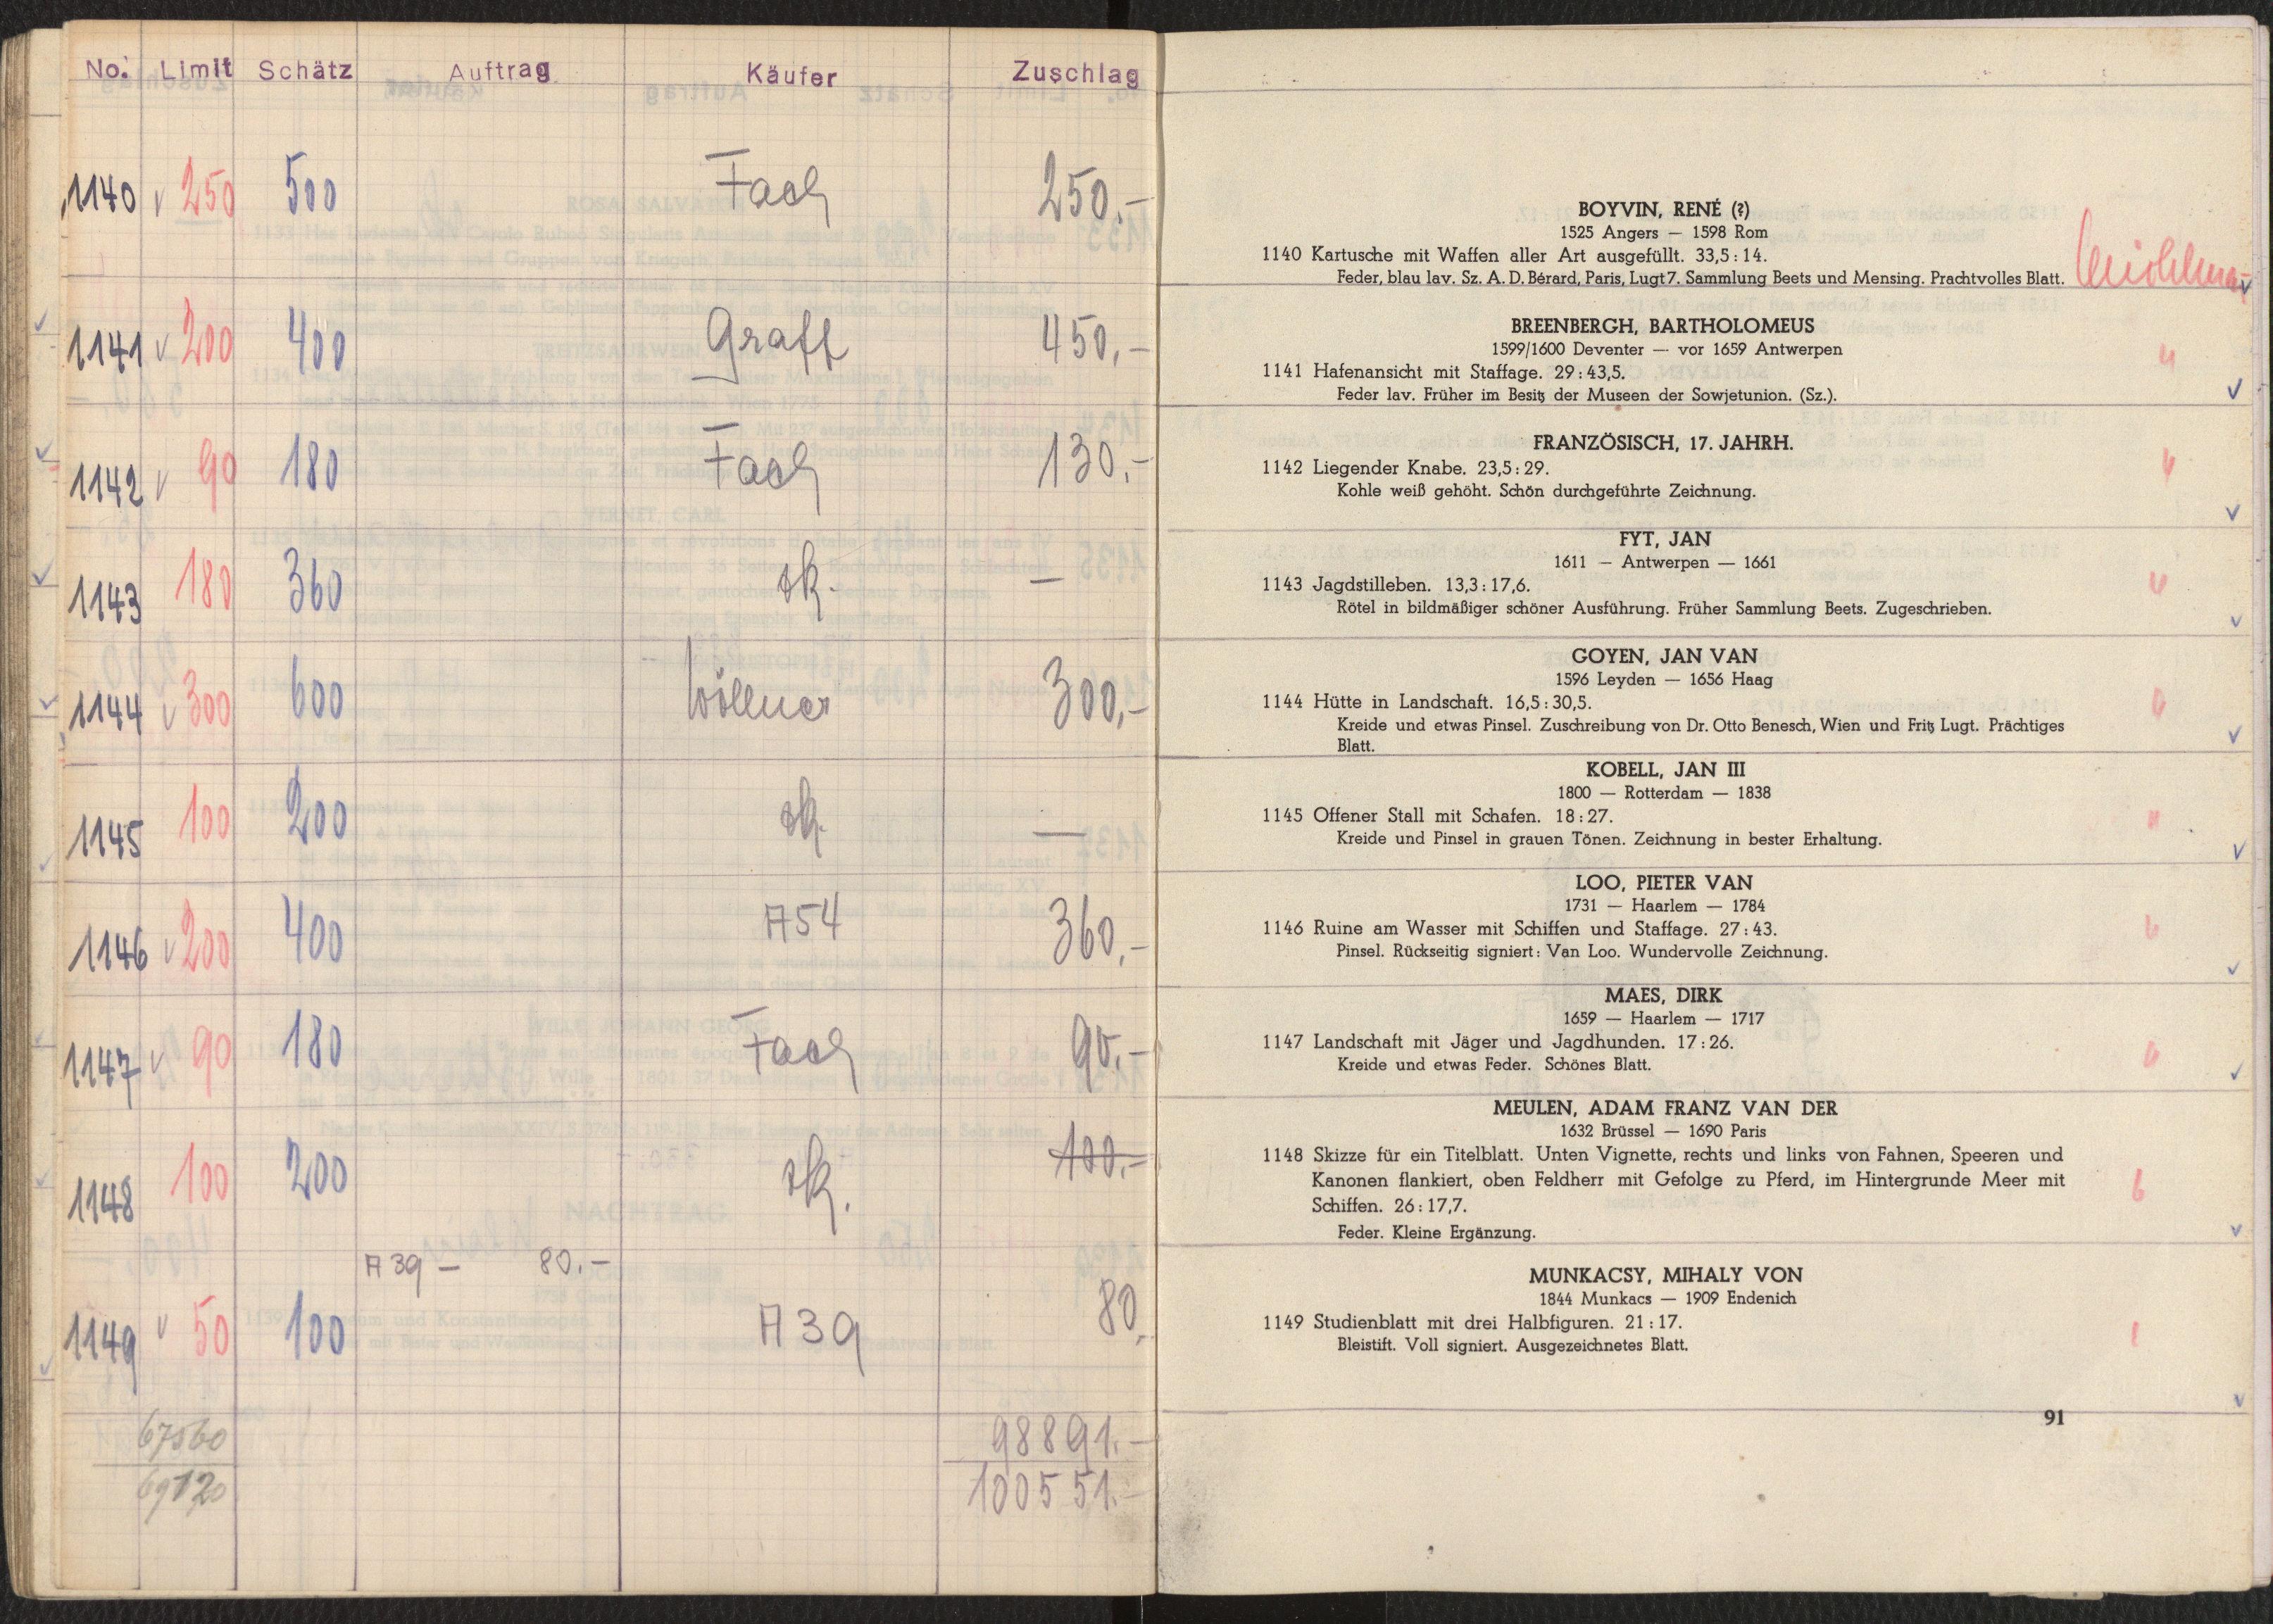 No. Limit Schätz Auftrag Käufer Zuschlag
1140 v 250 500 Fach 250.-
1141 v 200 400 Graff 450.-
1142 v 90 180 Fach 130.-
1143 180 360 zk. -
1144 v 300 600 Wöllner 300.-
1145 100 200 zk. -
1146 v 200 400 A54 360.-
1147 v 90 180 Fach 90.-
1148 100 200 zk. 100.-
A39 - 80.-
1149 v 50 100 A39 80.
67560 98891.-
69120 100551.-
BOYVIN, RENÉ (?)
1525 Angers — 1598 Rom
1140 Kartusche mit Waffen aller Art ausgefüllt. 33,5 : 14.
Feder, blau lav. Sz. A. D. Bérard, Paris, Lugt 7. Sammlung Beets und Mensing. Prachtvolles Blatt.
BREENBERGH, BARTHOLOMEUS
1599/1600 Deventer — vor 1659 Antwerpen
1141 Hafenansicht mit Staffage. 29 : 43,5.
Feder lav. Früher im Besitz der Museen der Sowjetunion. (Sz.).
FRANZÖSISCH, 17. JAHRH.
1142 Liegender Knabe. 23,5 : 29.
Kohle weiß gehöht. Schön durchgeführte Zeichnung.
FYT, JAN
1611 — Antwerpen — 1661
1143 Jagdstilleben. 13,3 : 17,6.
Rötel in bildmäßiger schöner Ausführung. Früher Sammlung Beets. Zugeschrieben.
GOYEN, JAN VAN
1596 Leyden — 1656 Haag
1144 Hütte in Landschaft. 16,5 : 30,5.
Kreide und etwas Pinsel. Zuschreibung von Dr. Otto Benesch, Wien und Fritz Lugt. Prächtiges
Blatt.
KOBELL, JAN III
1800 — Rotterdam — 1838
1145 Offener Stall mit Schafen. 18 : 27.
Kreide und Pinsel in grauen Tönen. Zeichnung in bester Erhaltung.
LOO, PIETER VAN
1731 — Haarlem — 1784
1146 Ruine am Wasser mit Schiffen und Staffage. 27 : 43.
Pinsel. Rückseitig signiert: Van Loo. Wundervolle Zeichnung.
MAES, DIRK
1659 — Haarlem — 1717
1147 Landschaft mit Jäger und Jagdhunden. 17 : 26.
Kreide und etwas Feder. Schönes Blatt.
MEULEN, ADAM FRANZ VAN DER
1632 Brüssel — 1690 Paris
1148 Skizze für ein Titelblatt. Unten Vignette, rechts und links von Fahnen, Speeren und
Kanonen flankiert, oben Feldherr mit Gefolge zu Pferd, im Hintergrunde Meer mit
Schiffen. 26 : 17,7.
Feder. Kleine Ergänzung.
MUNKACSY, MIHALY VON
1844 Munkacs — 1909 Endenich
1149 Studienblatt mit drei Halbfiguren. 21 : 17.
Bleistift. Voll signiert. Ausgezeichnetes Blatt.
91